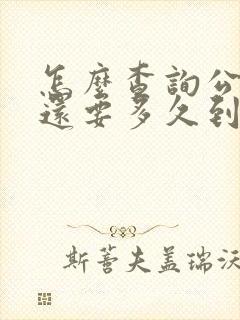 怎麼查詢公
還要多久到
斯蒈夫盖瑞沃